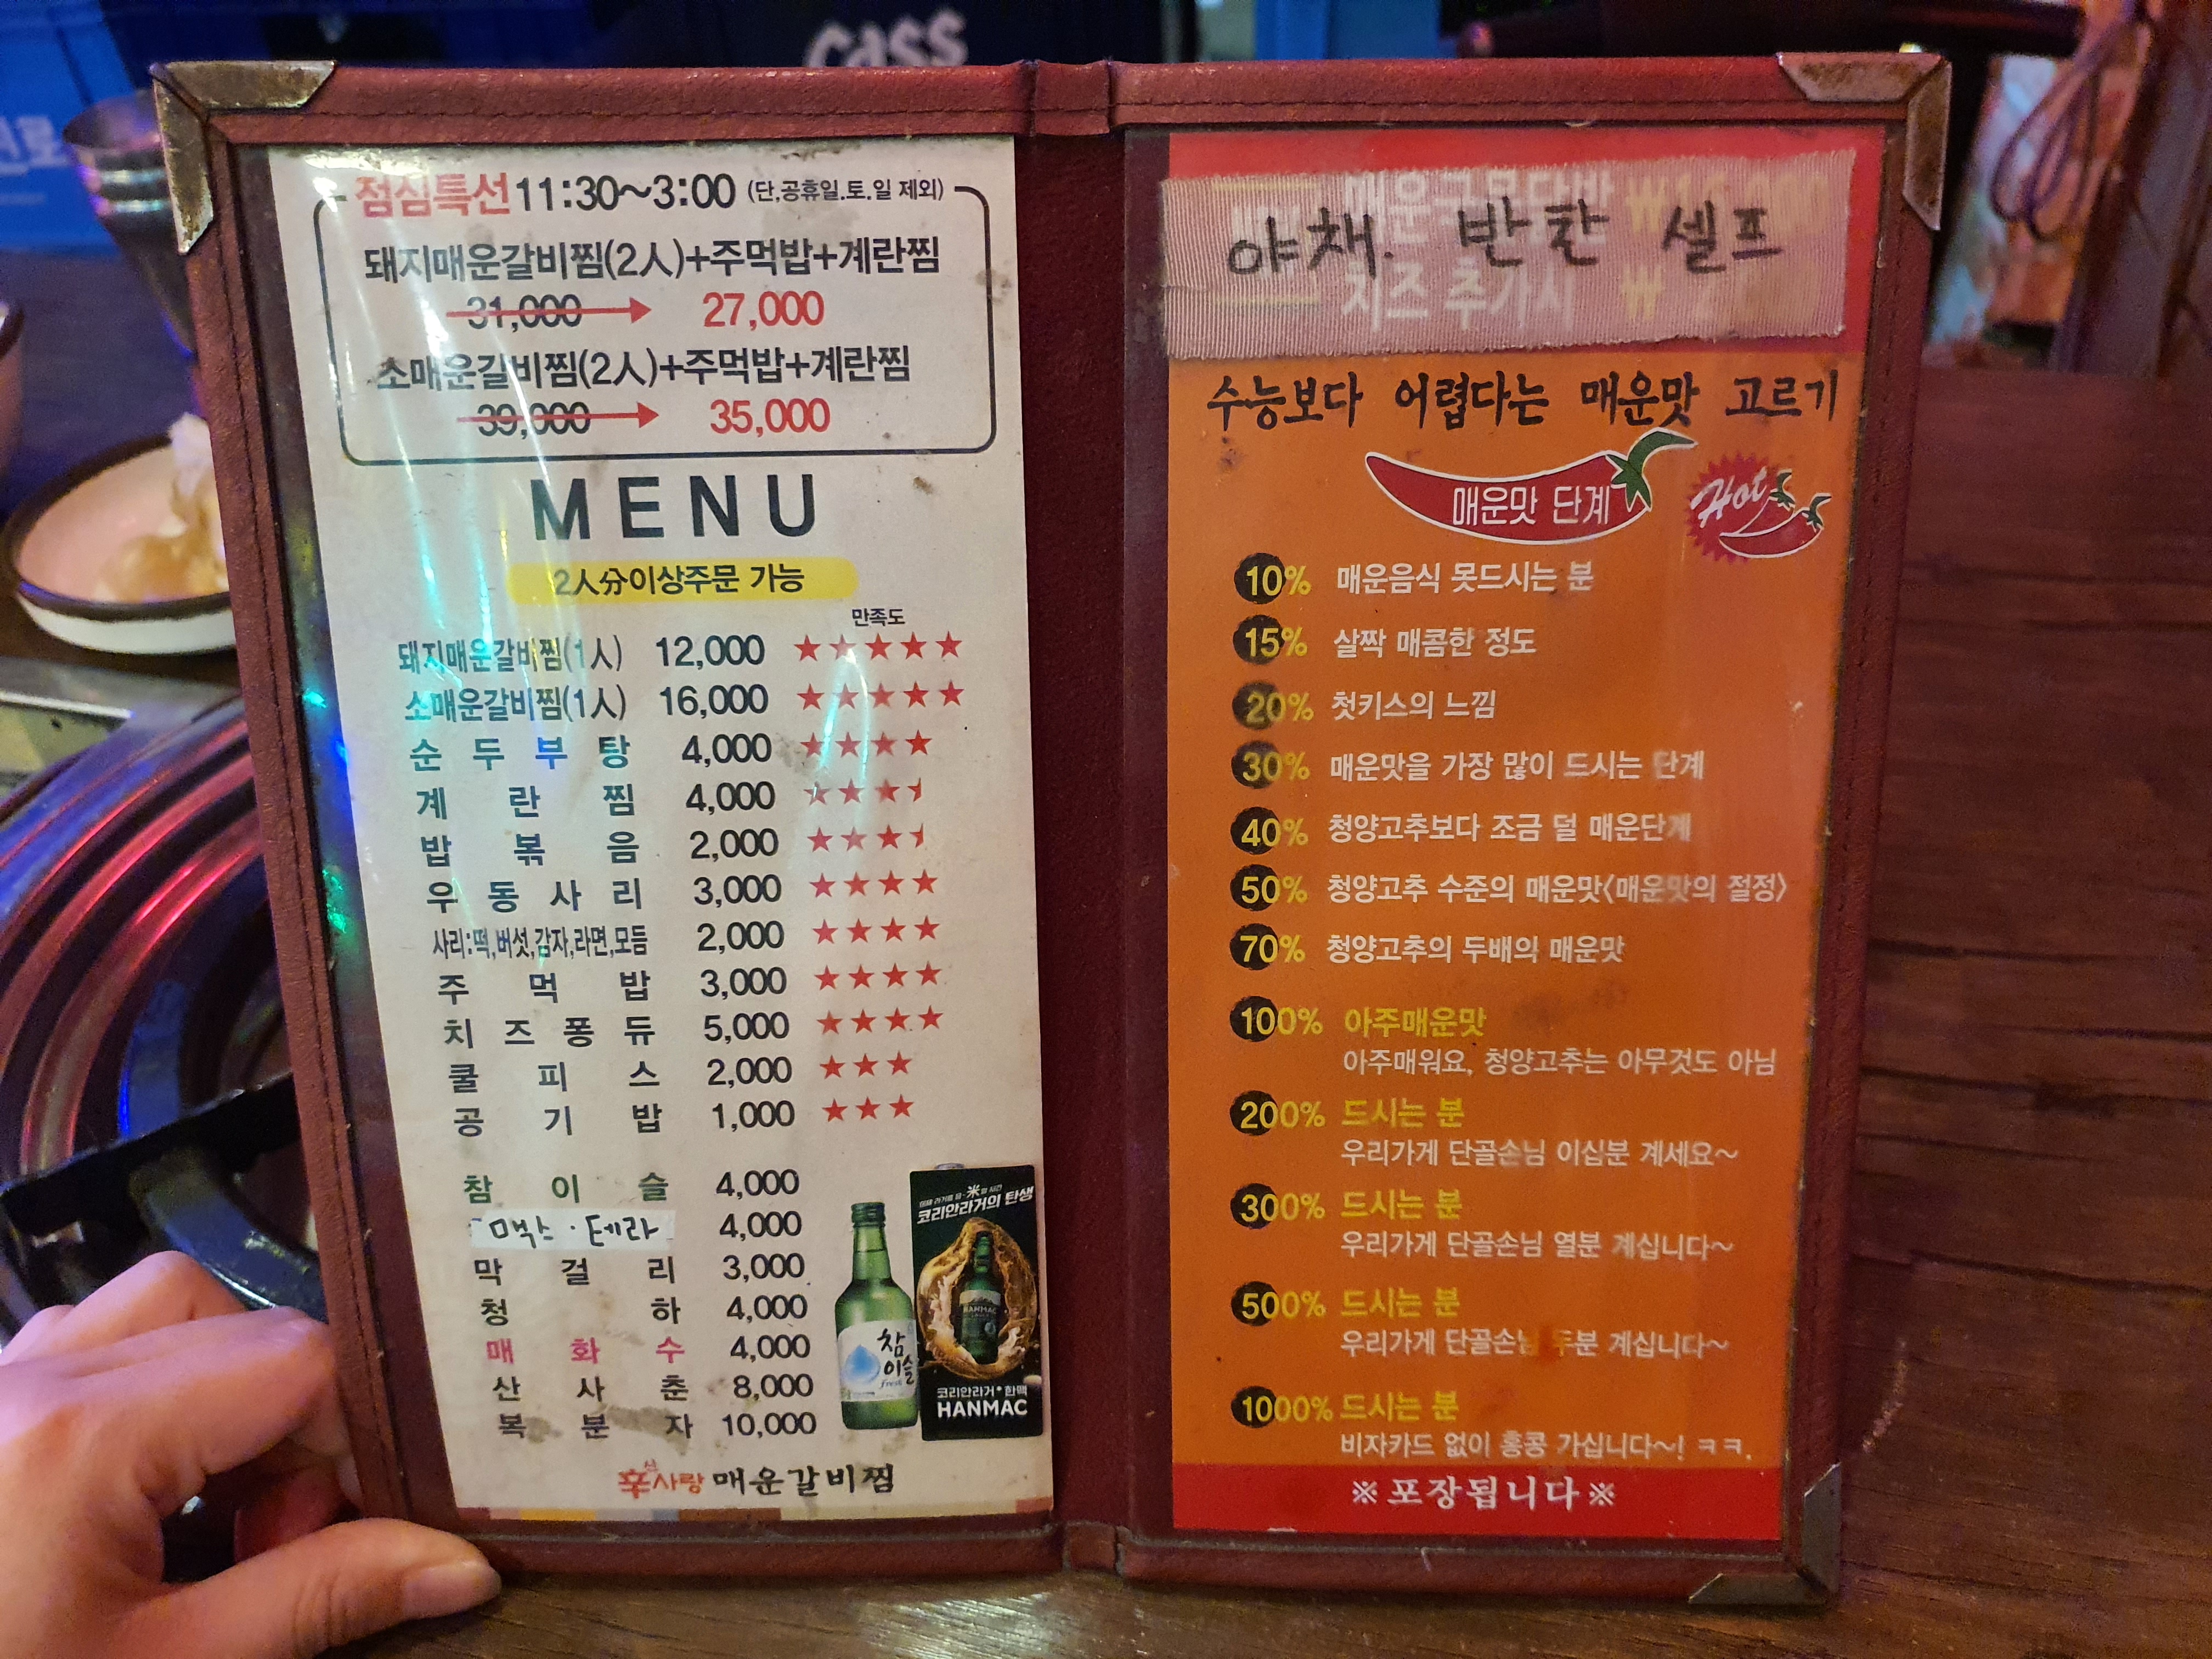 cass
점심특선 11:30~3:00 (단,공휴일.토.일 제외)
돼지매운갈비찜(2人)+주먹밥+계란찜
31,000 → 27,000
소매운갈비찜(2人)+주먹밥+계란찜
39,000 → 35,000
MENU
2人分이상주문 가능
만족도
돼지매운갈비찜(1人) 12,000 ★★★★★
소매운갈비찜(1人) 16,000 ★★★★★
순두부탕 4,000 ★★★★
계란찜 4,000 ★★★
밥볶음 2,000 ★★★
우동사리 3,000 ★★★★
사리:떡,버섯,감자,라면,모듬 2,000 ★★★★
주먹밥 3,000 ★★★★
치즈퐁듀 5,000 ★★★★
쿨피스 2,000 ★★★
공기밥 1,000 ★★★
참이슬 4,000
맥스·테라 4,000
막걸리 3,000
청하 4,000
매화수 4,000
산사춘 8,000
복분자 10,000
참이슬
fresh
코리안라거의 탄생
HANMAC
코리안라거 한맥
HANMAC
辛사랑 매운갈비찜
야채. 반찬 셀프
치즈 추가시 ₩
수능보다 어렵다는 매운맛 고르기
매운맛 단계
Hot
10% 매운음식 못드시는 분
15% 살짝 매콤한 정도
20% 첫키스의 느낌
30% 매운맛을 가장 많이 드시는 단계
40% 청양고추보다 조금 덜 매운단계
50% 청양고추 수준의 매운맛<매운맛의 절정>
70% 청양고추의 두배의 매운맛
100% 아주매운맛
아주매워요, 청양고추는 아무것도 아님
200% 드시는 분
우리가게 단골손님 이십분 계세요~
300% 드시는 분
우리가게 단골손님 열분 계십니다~
500% 드시는 분
우리가게 단골손님 두분 계십니다~
1000% 드시는 분
비자카드 없이 홍콩 가십니다~! ㅋㅋ.
※포장됩니다※